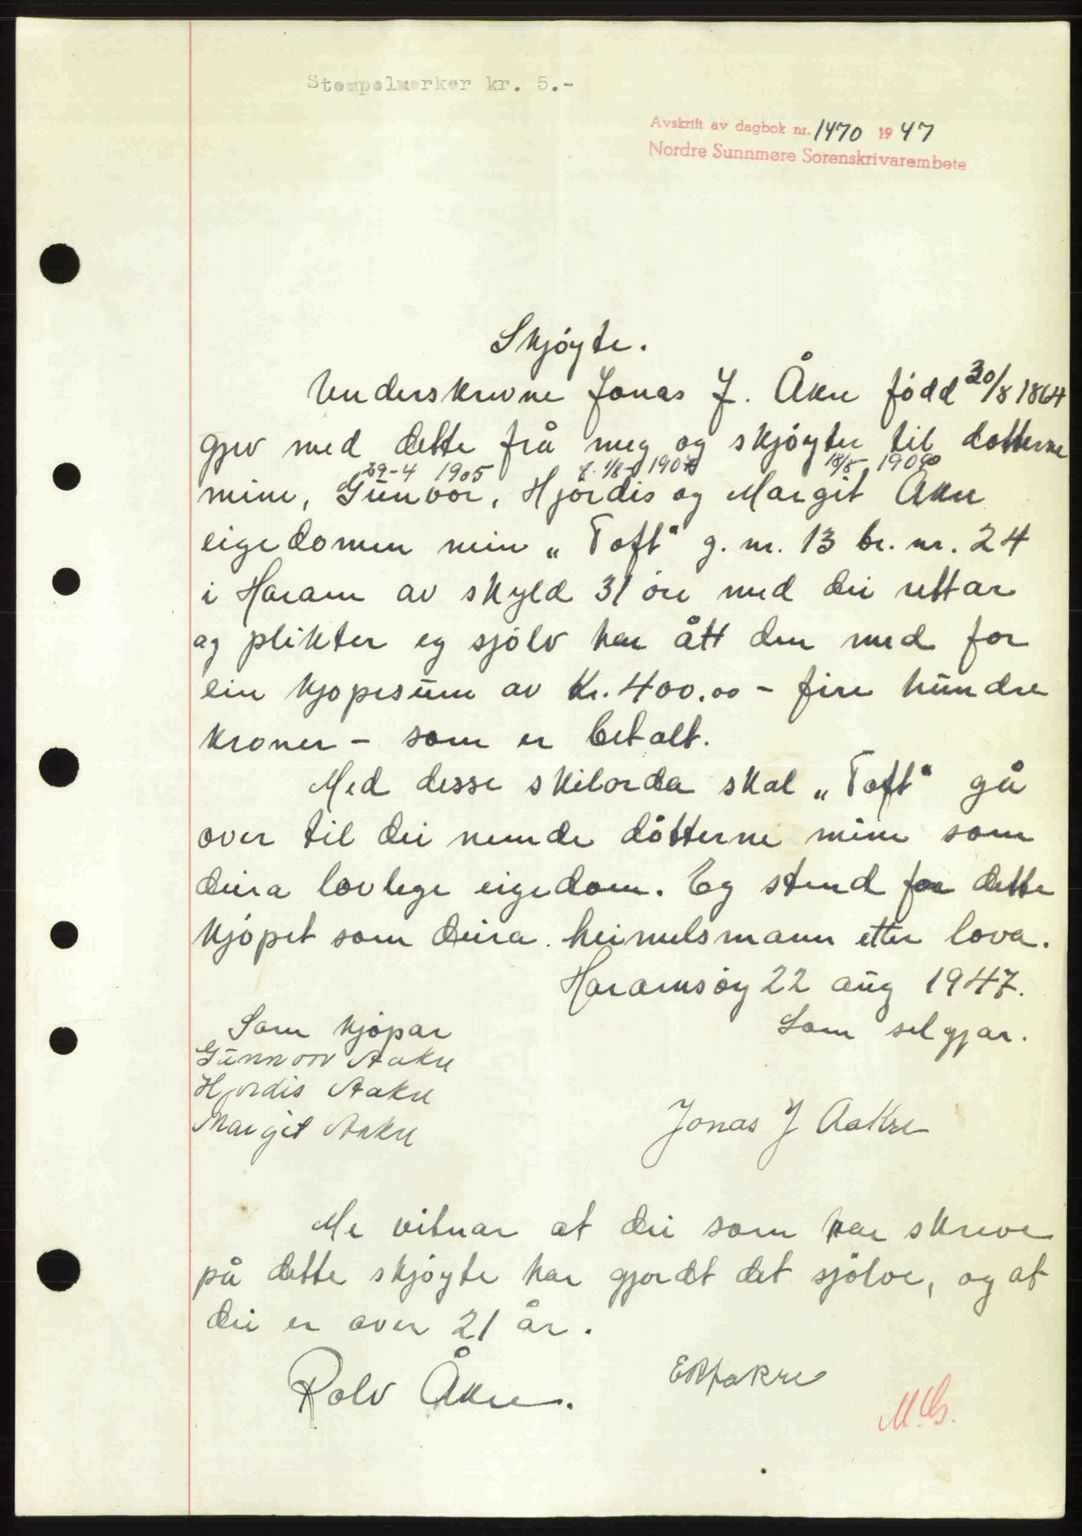 Stempelmerker kr. 5.-
Avskrift av dagbok nr. 1470 1947
Nordre Sunnmøre Sorenskrivarembete
Skjöyte.
Underskrivne Jonas J. Åkre född 30/8 1864
gjev med dette frå meg og skjöyter til dotterne
29-4 1905 1907 18/5 1909
mine, Gunvor, Hjördis og Margit Åkre
eigedomen min „Toft" g. nr. 13 br. nr. 24
i Haram av skyld 31 öre med dei rettar
og plikter eg sjölv har ått den med for
ein kjöpesum av kr. 400.00 - fire hundre
kroner - som er betalt.
Med desse skilorda skal „Toft" gå
over til dei nemde dötterne mine som
deira lovlege eigedom. Eg stend for dette
kjöpet som deira heimelsmann etter lova.
Haramsöy 22 aug 1947.
Som kjöpar
Som seljgar.
Gunnvor Aakre
Hjördis Aakre
Margit Aakre
Jonas J Aakre
Me vitnar at dei som har skreve
på dette skjöyte har gjordt det sjölve, og at
dei er over 21 år.
Rolv Åkre.
M.G.